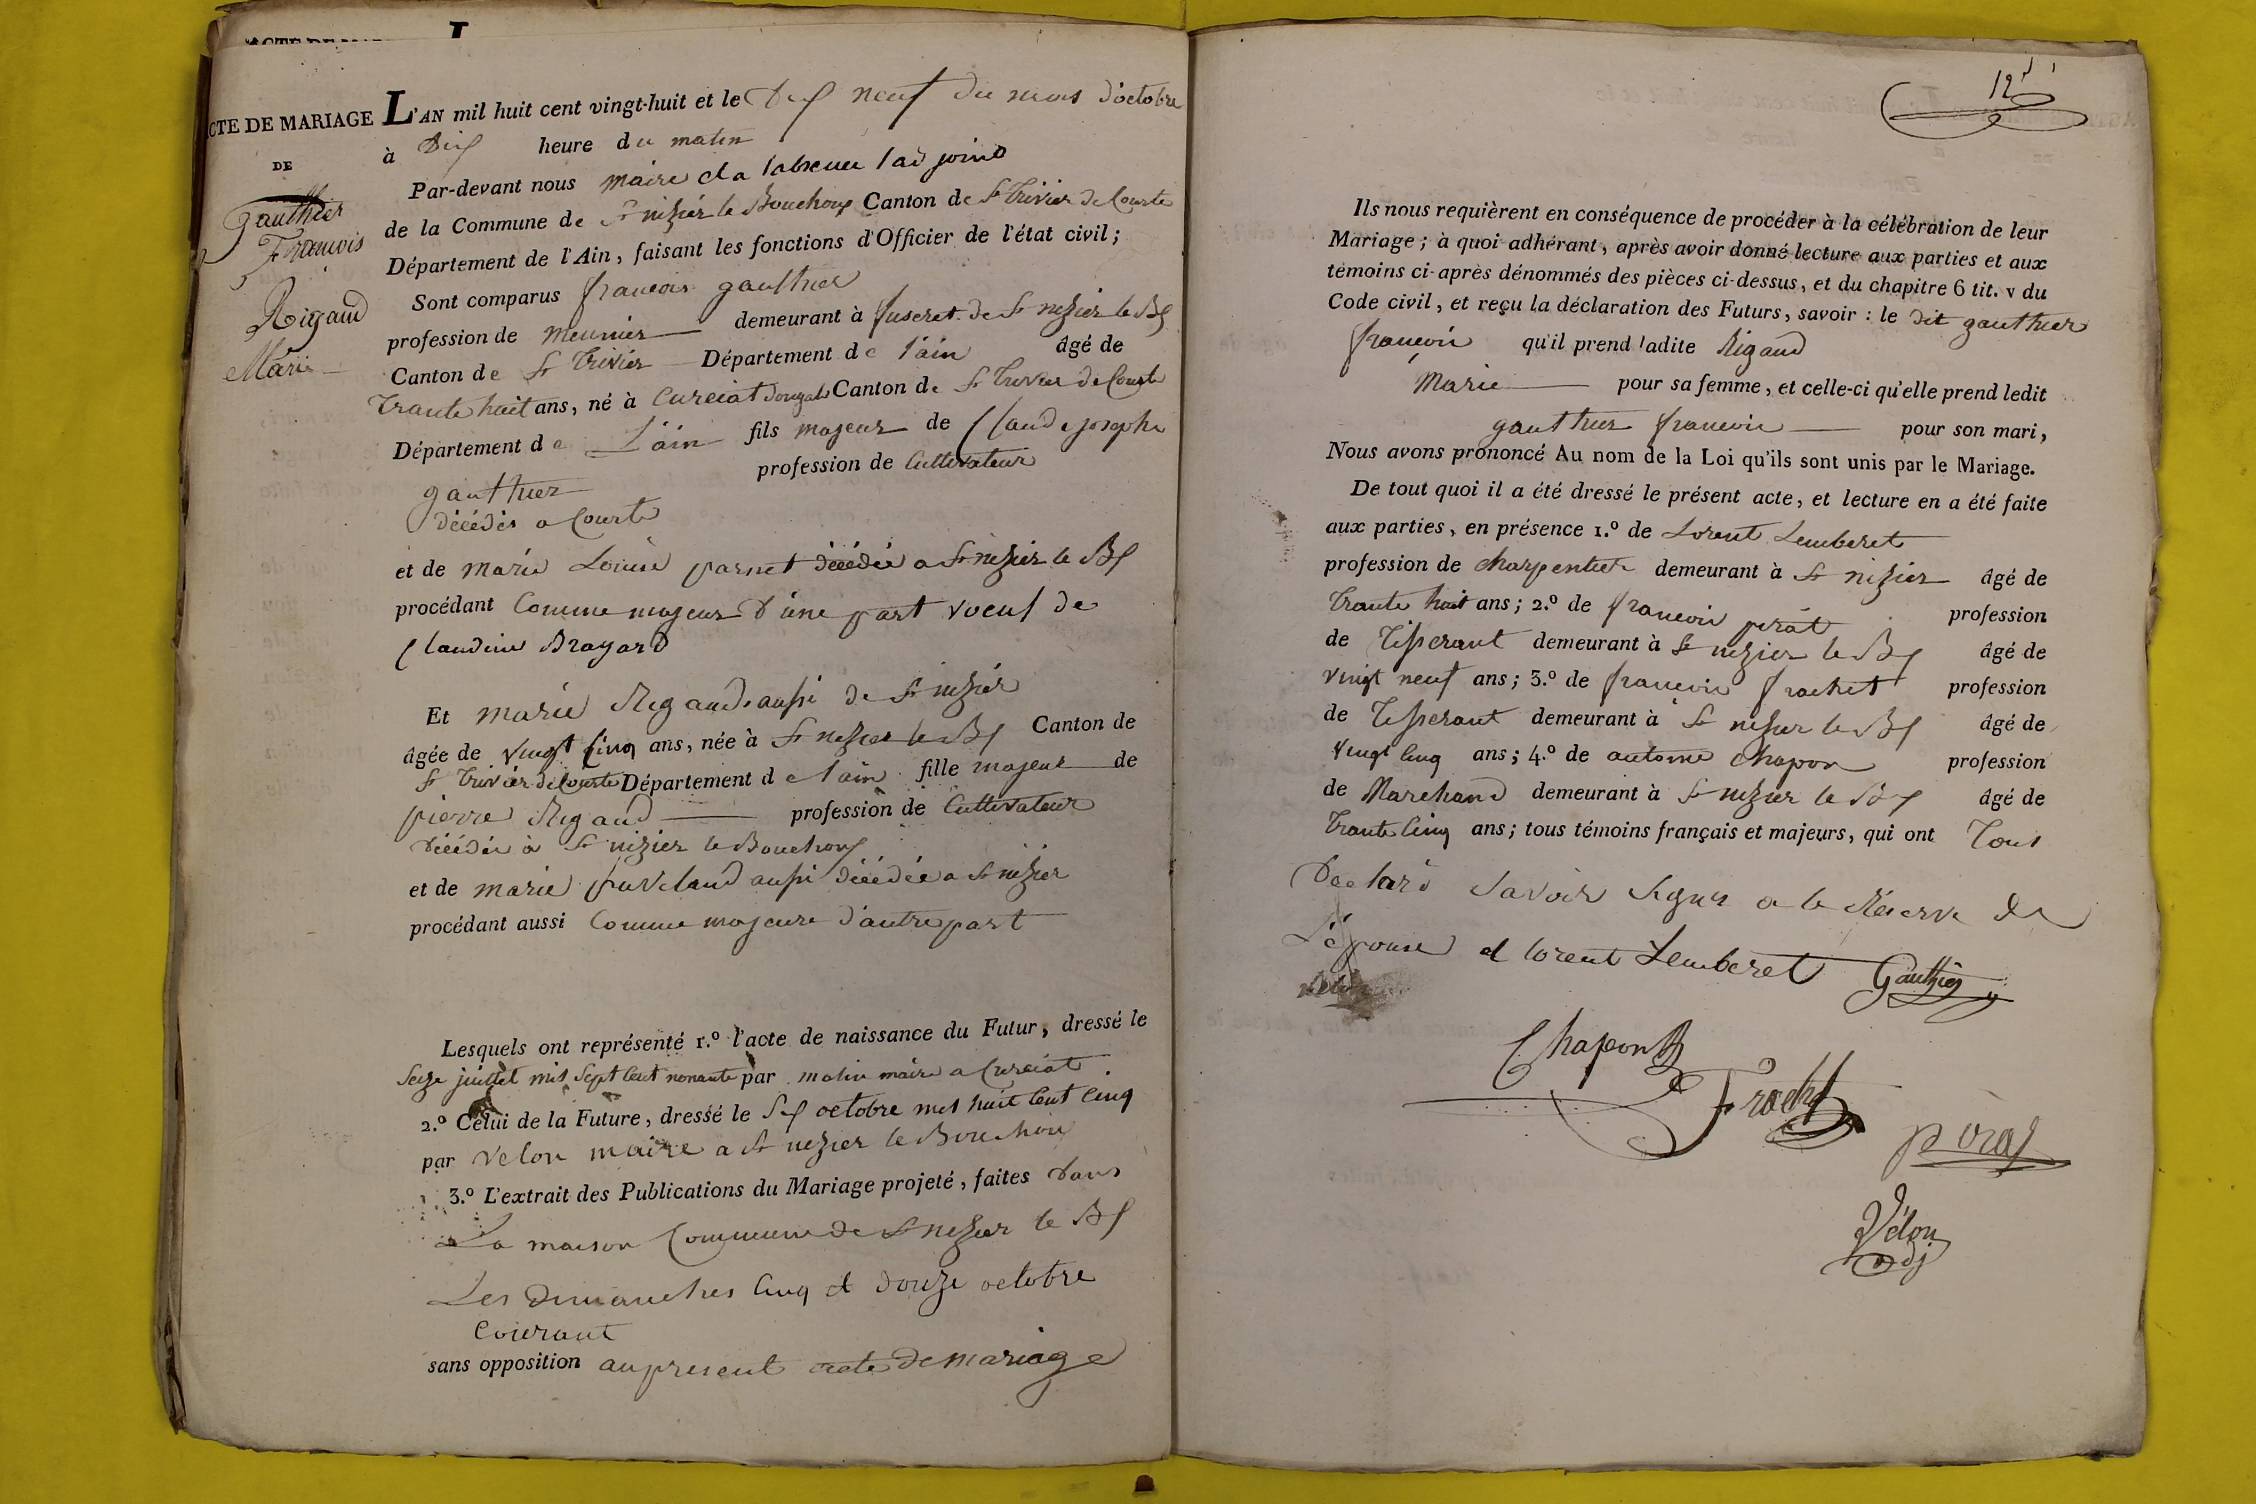 ACTE DE MARIAGE
DE
gauthier
François
Rigaud
Marie
L'AN mil huit cent vingt-huit et le Dix neuf du mois d'octobre
à Dix heure du matin
Par-devant nous maire et a labsence ladjoint
de la Commune de St nizier le Bouchoux Canton de St Trivier de Courte
Département de l'Ain, faisant les fonctions d'Officier de l'état civil;
Sont comparus françois gauthier
profession de meunier demeurant à fuseret de St nizier le Bx
Canton de St Trivier Département de l'ain âgé de
Trante huit ans, né à Curciat Dongalo Canton de St Trivier de Courte
Département de L'ain fils majeur de Claude josephe
gauthier profession de Cultivateur
décédés a Courte
et de marie Louise parnet décédée a St nizier le Bx
procédant Comme majeur d'une part voeuf de
Claudine Brayard
Et marie Rigaud aussi de St nizier
âgée de vingt Cinq ans, née à St nizier le Bx Canton de
St Trivier de Courte Département de l'ain fille majeur de
pierre Rigaud profession de Cultivateur
décédée à St nizier le Bouchoux
et de marie aussi décédée a St nizier
procédant aussi Comme majeure d'autre part
Lesquels ont représenté 1.º l'acte de naissance du Futur, dressé le
Seize juillet mil Sept Cent nonante par molin maire a Curciat
2.º Celui de la Future, dressé le Six octobre mil huit Cent Cinq
par velon maire a St nizier le Bouchoux
3.º L'extrait des Publications du Mariage projeté, faites Dans
La maison Commune de St nizier le Bx
Les dimanches Cinq et douze octobre
Courant
sans opposition au present acte de mariage
12
Ils nous requièrent en conséquence de procéder à la célébration de leur
Mariage; à quoi adhérant, après avoir donné lecture aux parties et aux
témoins ci-après dénommés des pièces ci-dessus, et du chapitre 6 tit. v du
Code civil, et reçu la déclaration des Futurs, savoir: le dit gauthier
françois qu'il prend ladite Rigaud
Marie pour sa femme, et celle-ci qu'elle prend ledit
gauthier françois pour son mari,
Nous avons prononcé Au nom de la Loi qu'ils sont unis par le Mariage.
De tout quoi il a été dressé le présent acte, et lecture en a été faite
aux parties, en présence 1.º de Lorent Lemberet
profession de charpentier demeurant à St nizier âgé de
Trante huit ans; 2.º de françois pirat profession
de Tisserant demeurant à St nizier le Bx âgé de
vingt neuf ans; 3.º de françois frachet profession
de Tisserant demeurant à St nizier le Bx âgé de
vingt Cinq ans; 4.º de antoine Chapon profession
de Marchand demeurant à St nizier le Bx âgé de
Trante Cinq ans; tous témoins français et majeurs, qui ont Tous
Declaré Savoir Signer a la Réserve de
L'épouse et lorent Lemberet Gauthier
Chapon
Frachet
piras
Vélon
adj